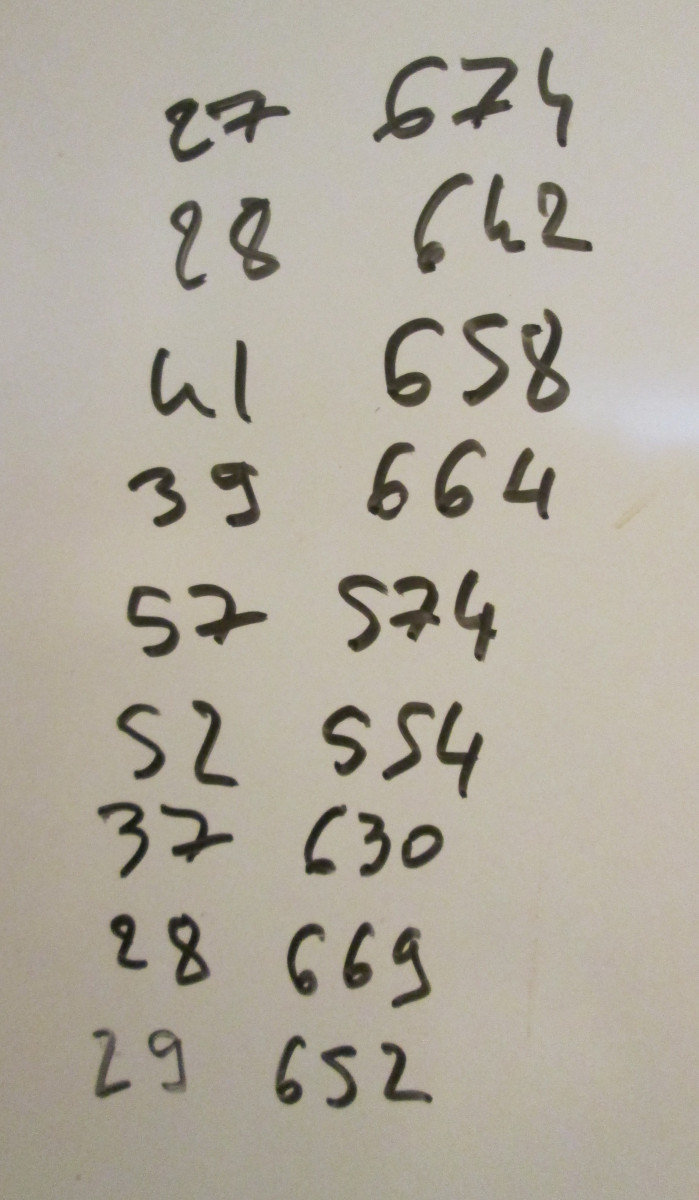 27 674
28 642
41 658
39 664
57 574
52 554
37 630
28 669
29 652